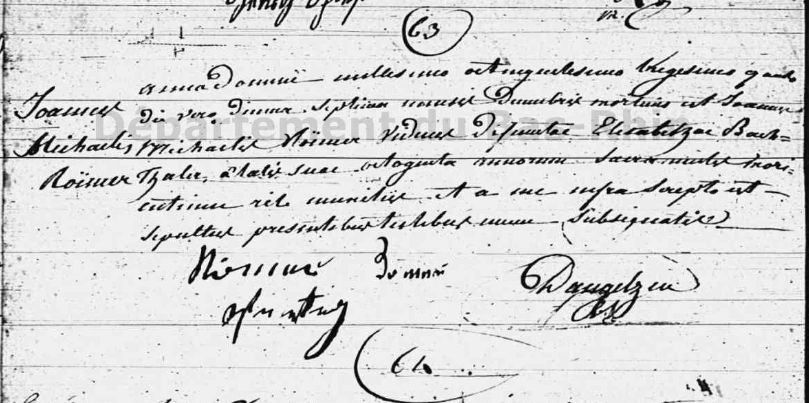 63
Joannes
Michaelis
Römer
anno Domini millesimo octinguentesimo trigesimo quarto
die vero decima septima mensis Decembris mortuus est Joannes
Michaelis Römer viduus defunctae Elisabethae Bach-
thaler, aetatis suae octoginta annorum sacramentis mori-
entium rite munitus et a me infra scripto est
sepultus presentibus testibus mecum subsignatis
Römer
64
Département du Bas-Rhin